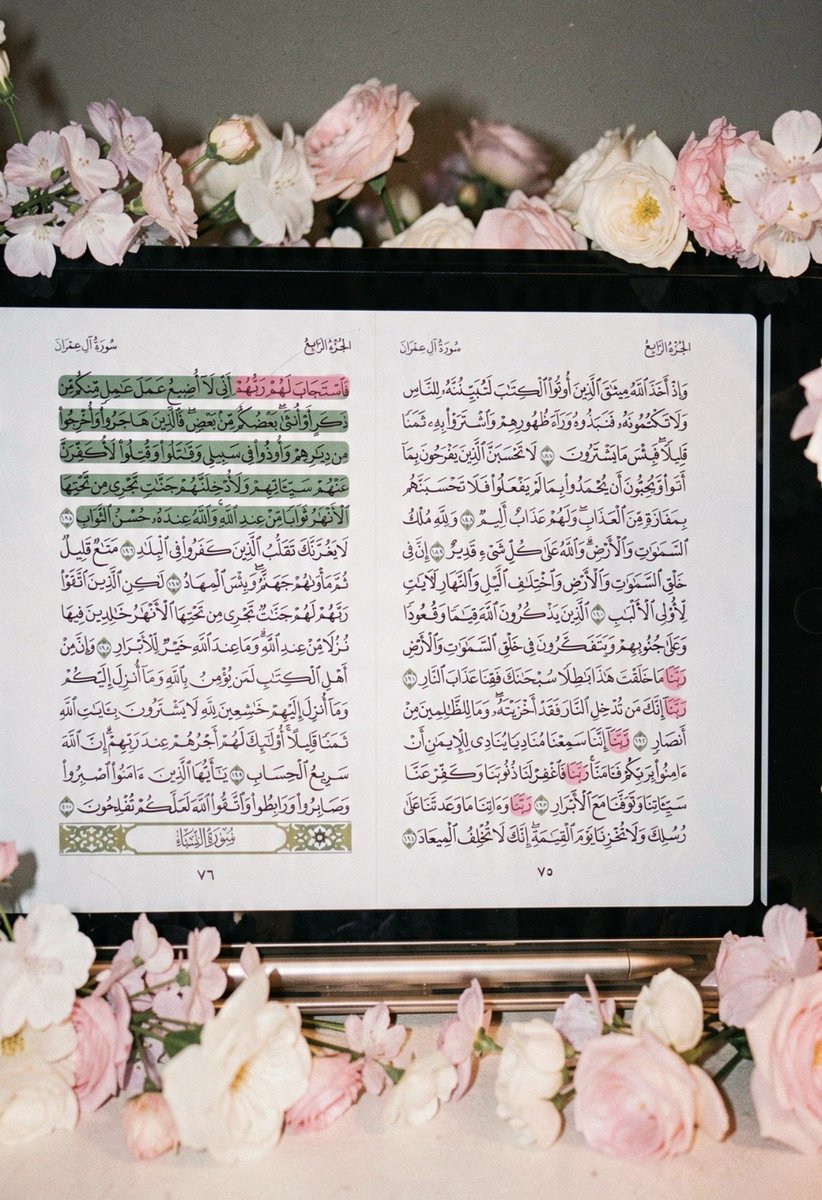 سُورَةُ آلِ عِمْرَانَ الجُزْءُ الرَّابِعُ
وَإِذْ أَخَذَ ٱللَّهُ مِيثَٰقَ ٱلَّذِينَ أُوتُوا۟ ٱلْكِتَٰبَ لَتُبَيِّنُنَّهُۥ لِلنَّاسِ
وَلَا تَكْتُمُونَهُۥ فَنَبَذُوهُ وَرَآءَ ظُهُورِهِمْ وَٱشْتَرَوْا۟ بِهِۦ ثَمَنًا
قَلِيلًا ۖ فَبِئْسَ مَا يَشْتَرُونَ ١٨٧ لَا تَحْسَبَنَّ ٱلَّذِينَ يَفْرَحُونَ بِمَآ
أَتَوا۟ وَّيُحِبُّونَ أَن يُحْمَدُوا۟ بِمَا لَمْ يَفْعَلُوا۟ فَلَا تَحْسَبَنَّهُم
بِمَفَازَةٍ مِّنَ ٱلْعَذَابِ ۖ وَلَهُمْ عَذَابٌ أَلِيمٌ ١٨٨ وَلِلَّهِ مُلْكُ
ٱلسَّمَٰوَٰتِ وَٱلْأَرْضِ ۗ وَٱللَّهُ عَلَىٰ كُلِّ شَىْءٍ قَدِيرٌ ١٨٩ إِنَّ فِى
خَلْقِ ٱلسَّمَٰوَٰتِ وَٱلْأَرْضِ وَٱخْتِلَٰفِ ٱلَّيْلِ وَٱلنَّهَارِ لَءَايَٰتٍ
لِّأُو۟لِى ٱلْأَلْبَٰبِ ١٩٠ ٱلَّذِينَ يَذْكُرُونَ ٱللَّهَ قِيَٰمًا وَقُعُودًا
وَعَلَىٰ جُنُوبِهِمْ وَيَتَفَكَّرُونَ فِى خَلْقِ ٱلسَّمَٰوَٰتِ وَٱلْأَرْضِ
رَبَّنَا مَا خَلَقْتَ هَٰذَا بَٰطِلًا سُبْحَٰنَكَ فَقِنَا عَذَابَ ٱلنَّارِ ١٩١
رَبَّنَآ إِنَّكَ مَن تُدْخِلِ ٱلنَّارَ فَقَدْ أَخْزَيْتَهُۥ ۖ وَمَا لِلظَّٰلِمِينَ مِنْ
أَنصَارٍ ١٩٢ رَّبَّنَآ إِنَّنَا سَمِعْنَا مُنَادِيًا يُنَادِى لِلْإِيمَٰنِ أَنْ
ءَامِنُوا۟ بِرَبِّكُمْ فَـَٔامَنَّا ۚ رَبَّنَا فَٱغْفِرْ لَنَا ذُنُوبَنَا وَكَفِّرْ عَنَّا
سَيِّـَٔاتِنَا وَتَوَفَّنَا مَعَ ٱلْأَبْرَارِ ١٩٣ رَبَّنَا وَءَاتِنَا مَا وَعَدتَّنَا عَلَىٰ
رُسُلِكَ وَلَا تُخْزِنَا يَوْمَ ٱلْقِيَٰمَةِ ۗ إِنَّكَ لَا تُخْلِفُ ٱلْمِيعَادَ ١٩٤
٧٥
سُورَةُ آلِ عِمْرَانَ الجُزْءُ الرَّابِعُ
فَٱسْتَجَابَ لَهُمْ رَبُّهُمْ أَنِّى لَآ أُضِيعُ عَمَلَ عَٰمِلٍ مِّنكُم مِّن
ذَكَرٍ أَوْ أُنثَىٰ ۖ بَعْضُكُم مِّنۢ بَعْضٍ ۖ فَٱلَّذِينَ هَاجَرُوا۟ وَأُخْرِجُوا۟
مِن دِيَٰرِهِمْ وَأُوذُوا۟ فِى سَبِيلِى وَقَٰتَلُوا۟ وَقُتِلُوا۟ لَأُكَفِّرَنَّ
عَنْهُمْ سَيِّـَٔاتِهِمْ وَلَأُدْخِلَنَّهُمْ جَنَّٰتٍ تَجْرِى مِن تَحْتِهَا
ٱلْأَنْهَٰرُ ثَوَابًا مِّنْ عِندِ ٱللَّهِ ۗ وَٱللَّهُ عِندَهُۥ حُسْنُ ٱلثَّوَابِ ١٩٥
لَا يَغُرَّنَّكَ تَقَلُّبُ ٱلَّذِينَ كَفَرُوا۟ فِى ٱلْبِلَٰدِ ١٩٦ مَتَٰعٌ قَلِيلٌ
ثُمَّ مَأْوَىٰهُمْ جَهَنَّمُ ۚ وَبِئْسَ ٱلْمِهَادُ ١٩٧ لَٰكِنِ ٱلَّذِينَ ٱتَّقَوْا۟
رَبَّهُمْ لَهُمْ جَنَّٰتٌ تَجْرِى مِن تَحْتِهَا ٱلْأَنْهَٰرُ خَٰلِدِينَ فِيهَا
نُزُلًا مِّنْ عِندِ ٱللَّهِ ۗ وَمَا عِندَ ٱللَّهِ خَيْرٌ لِّلْأَبْرَارِ ١٩٨ وَإِنَّ مِنْ
أَهْلِ ٱلْكِتَٰبِ لَمَن يُؤْمِنُ بِٱللَّهِ وَمَآ أُنزِلَ إِلَيْكُمْ
وَمَآ أُنزِلَ إِلَيْهِمْ خَٰشِعِينَ لِلَّهِ لَا يَشْتَرُونَ بِـَٔايَٰتِ ٱللَّهِ
ثَمَنًا قَلِيلًا ۗ أُو۟لَٰٓئِكَ لَهُمْ أَجْرُهُمْ عِندَ رَبِّهِمْ ۗ إِنَّ ٱللَّهَ
سَرِيعُ ٱلْحِسَابِ ١٩٩ يَٰٓأَيُّهَا ٱلَّذِينَ ءَامَنُوا۟ ٱصْبِرُوا۟
وَصَابِرُوا۟ وَرَابِطُوا۟ وَٱتَّقُوا۟ ٱللَّهَ لَعَلَّكُمْ تُفْلِحُونَ ٢٠٠
سُورَةُ النِّسَاءِ
٧٦